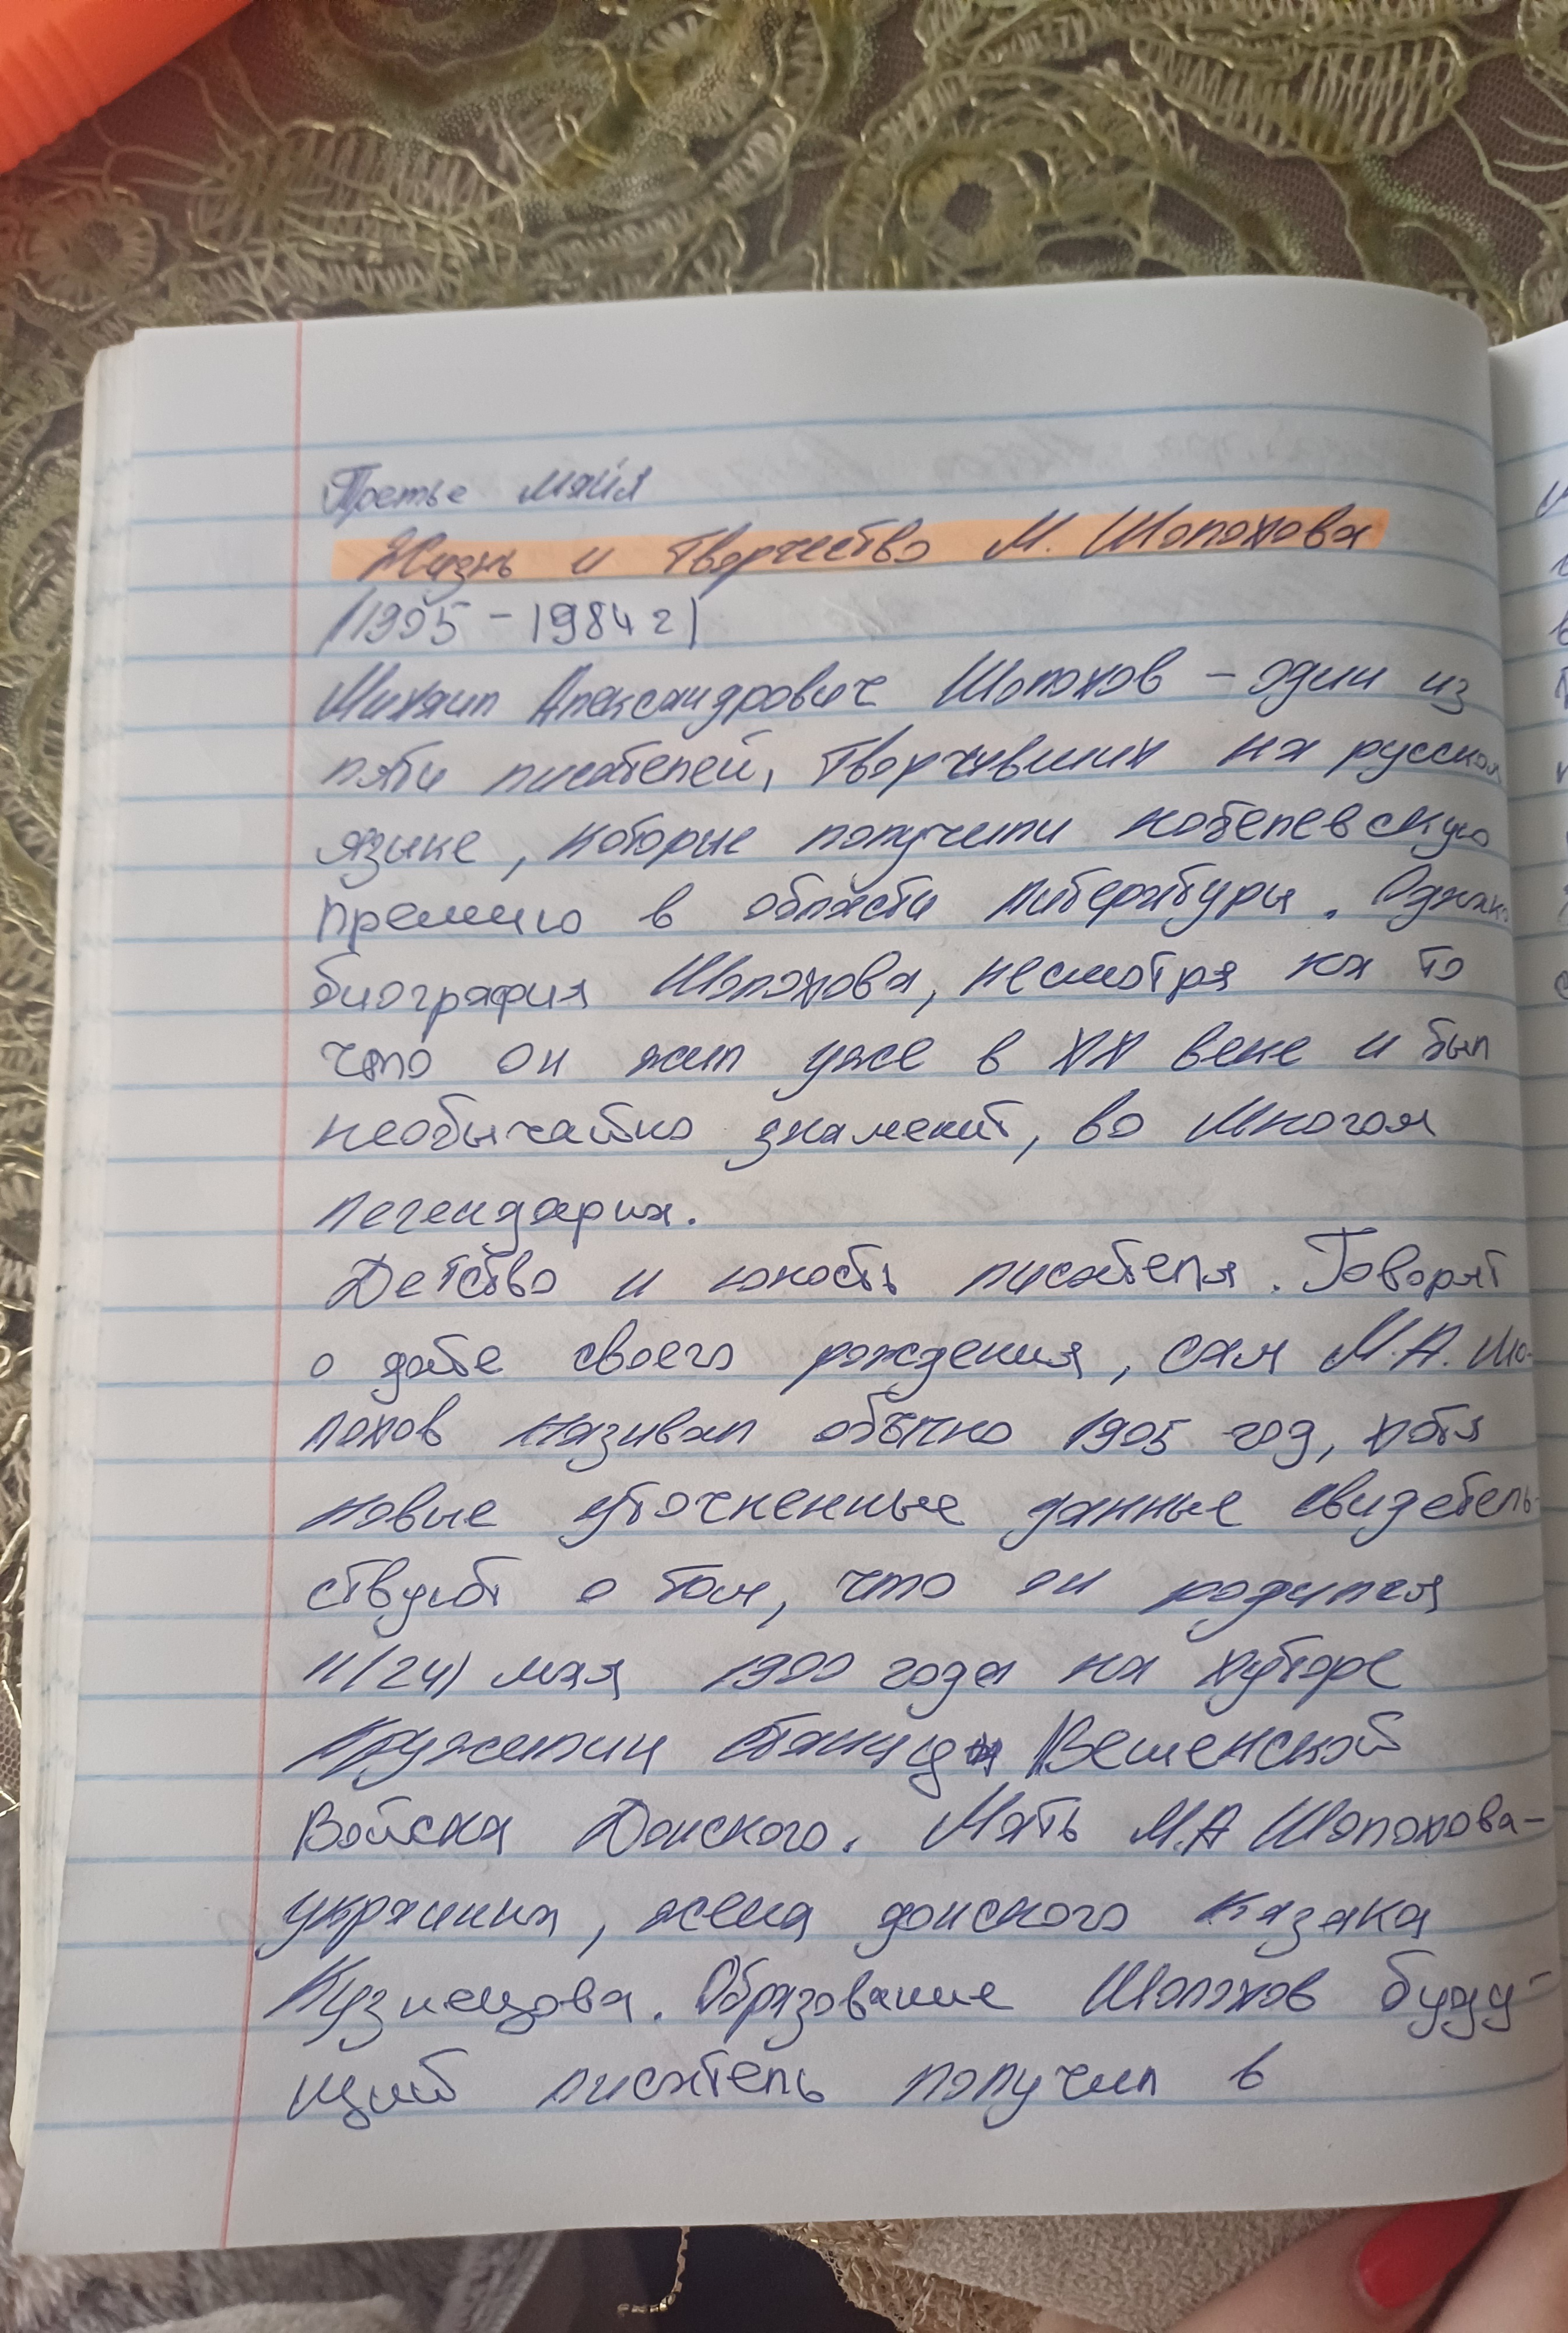 Третье майя
Жизнь и творчество М. Шолохова
(1905 - 1984 г)
Михаил Александрович Шолохов - один из
пяти писателей, творчивших на русском
языке, которые получили нобелевскую
премию в области литературы. Однако
биография Шолохова, несмотря на то
что он жил уже в XX веке и был
необычайно знаменит, во многом
легендарна.
Детство и юность писателя. Говорят
о дате своего рождения, сам М.А. Шо-
лохов называл обычно 1905 год, хотя
новые уточненные данные свидетель-
ствуют о том, что он родился
11(24) мая 1900 года на хуторе
Кружилин станицы Вешенской
Войска Донского. Мать М.А Шолохова-
украинка, жена донского казака
Кузнецова. Образование Шолохов буду-
щий писатель получил в